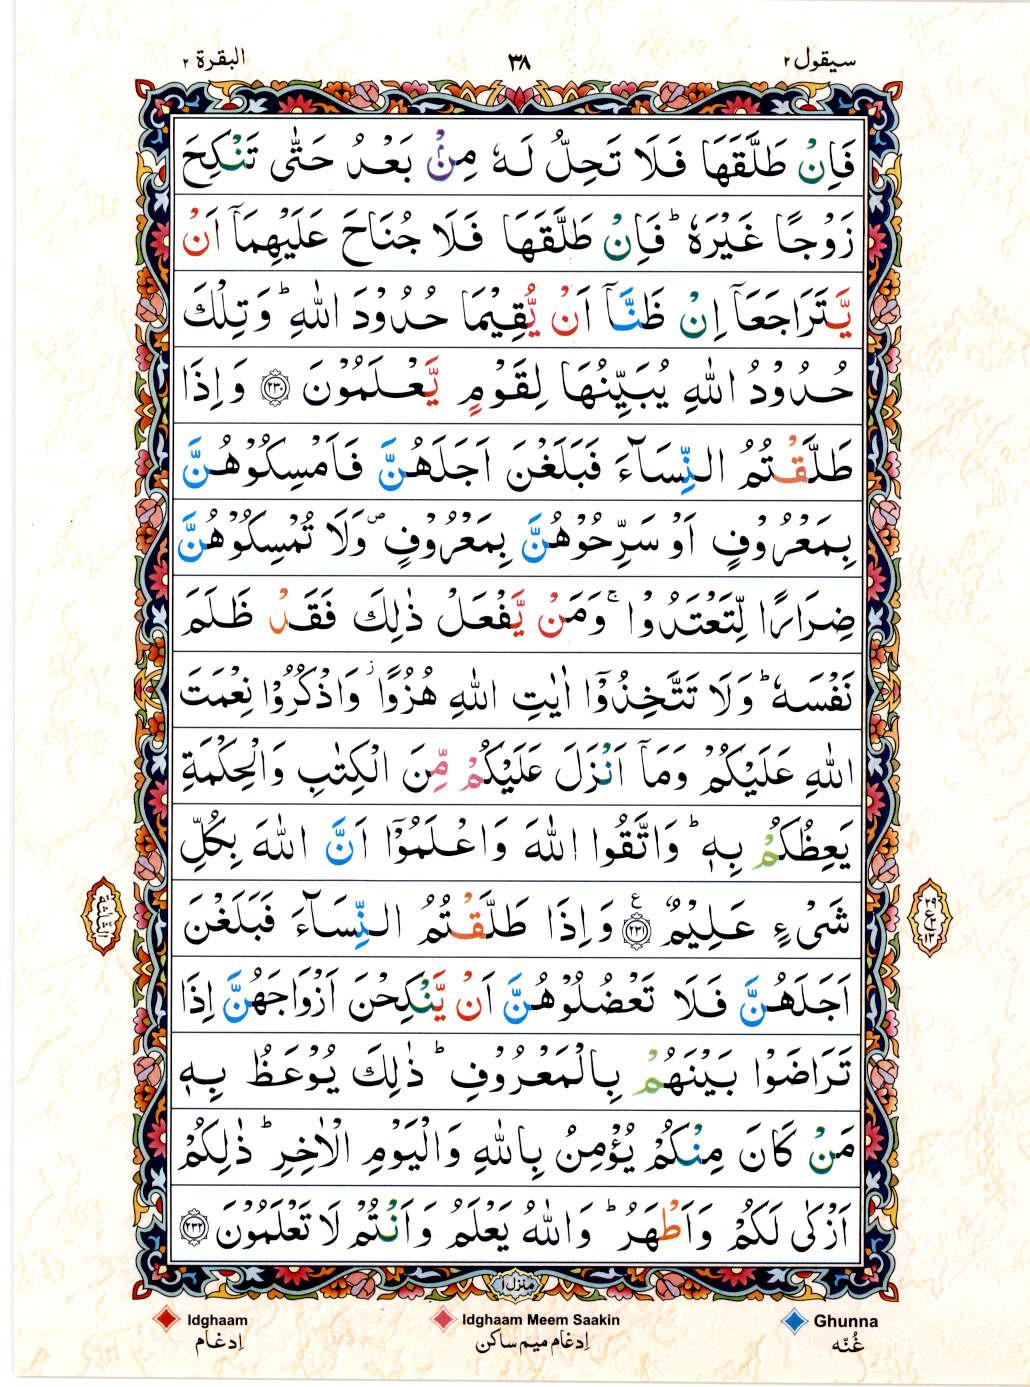 سيقول ٢ ٣٨ البقرة ٢
فَاِنْ طَلَّقَهَا فَلَا تَحِلُّ لَهٗ مِنْۢ بَعْدُ حَتّٰى تَنْكِحَ
زَوْجًا غَيْرَهٗ ؕ فَاِنْ طَلَّقَهَا فَلَا جُنَاحَ عَلَيْهِمَاۤ اَنْ
يَّتَرَاجَعَاۤ اِنْ ظَنَّاۤ اَنْ يُّقِيْمَا حُدُوْدَ اللّٰهِ ؕ وَتِلْكَ
حُدُوْدُ اللّٰهِ يُبَيِّنُهَا لِقَوْمٍ يَّعْلَمُوْنَ ﴿٢٣٠﴾ وَاِذَا
طَلَّقْتُمُ النِّسَآءَ فَبَلَغْنَ اَجَلَهُنَّ فَاَمْسِكُوْهُنَّ
بِمَعْرُوْفٍ اَوْ سَرِّحُوْهُنَّ بِمَعْرُوْفٍ ۪ وَلَا تُمْسِكُوْهُنَّ
ضِرَارًا لِّتَعْتَدُوْا ۚ وَمَنْ يَّفْعَلْ ذٰلِكَ فَقَدْ ظَلَمَ
نَفْسَهٗ ؕ وَلَا تَتَّخِذُوْۤا اٰيٰتِ اللّٰهِ هُزُوًا ؗ وَاذْكُرُوْا نِعْمَتَ
اللّٰهِ عَلَيْكُمْ وَمَاۤ اَنْزَلَ عَلَيْكُمْ مِّنَ الْكِتٰبِ وَالْحِكْمَةِ
يَعِظُكُمْ بِهٖ ؕ وَاتَّقُوا اللّٰهَ وَاعْلَمُوْۤا اَنَّ اللّٰهَ بِكُلِّ
شَىْءٍ عَلِيْمٌ ﴿٢٣١﴾ ع وَاِذَا طَلَّقْتُمُ النِّسَآءَ فَبَلَغْنَ
اَجَلَهُنَّ فَلَا تَعْضُلُوْهُنَّ اَنْ يَّنْكِحْنَ اَزْوَاجَهُنَّ اِذَا
تَرَاضَوْا بَيْنَهُمْ بِالْمَعْرُوْفِ ؕ ذٰلِكَ يُوْعَظُ بِهٖ
مَنْ كَانَ مِنْكُمْ يُؤْمِنُ بِاللّٰهِ وَالْيَوْمِ الْاٰخِرِ ؕ ذٰلِكُمْ
اَزْكٰى لَكُمْ وَاَطْهَرُ ؕ وَاللّٰهُ يَعْلَمُ وَاَنْتُمْ لَا تَعْلَمُوْنَ ﴿٢٣٢﴾
منزل ١
Idghaam Idghaam Meem Saakin Ghunna
اِدغام اِدغام ميم ساكن غُنّه